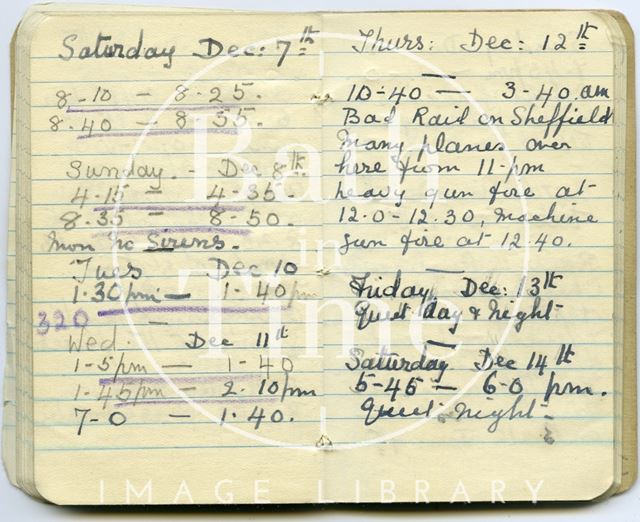 Saturday Dec: 7th
8-10 - 8-25.
8.40 - 8.55.
Sunday. - Dec 8th
4-15 - 4-35.
8.35 - 8-50.
Mon No Sirens.
Tues Dec 10
1.30pm - 1-40pm
320
Wed. Dec 11th
1-5pm - 1-40
1-45pm - 2.10pm
7-0 - 1.40.
Thurs: Dec: 12th
10-40 - 3-40 am
Bad Raid on Sheffield
Many planes over
here from 11-pm
heavy gun fire at
12.0-12.30, machine
gun fire at 12.40.
Friday Dec: 13th
Quiet day & Night
Saturday Dec 14th
5-45 - 6-0 pm.
Quiet night
Bath
in
Time
IMAGE LIBRARY